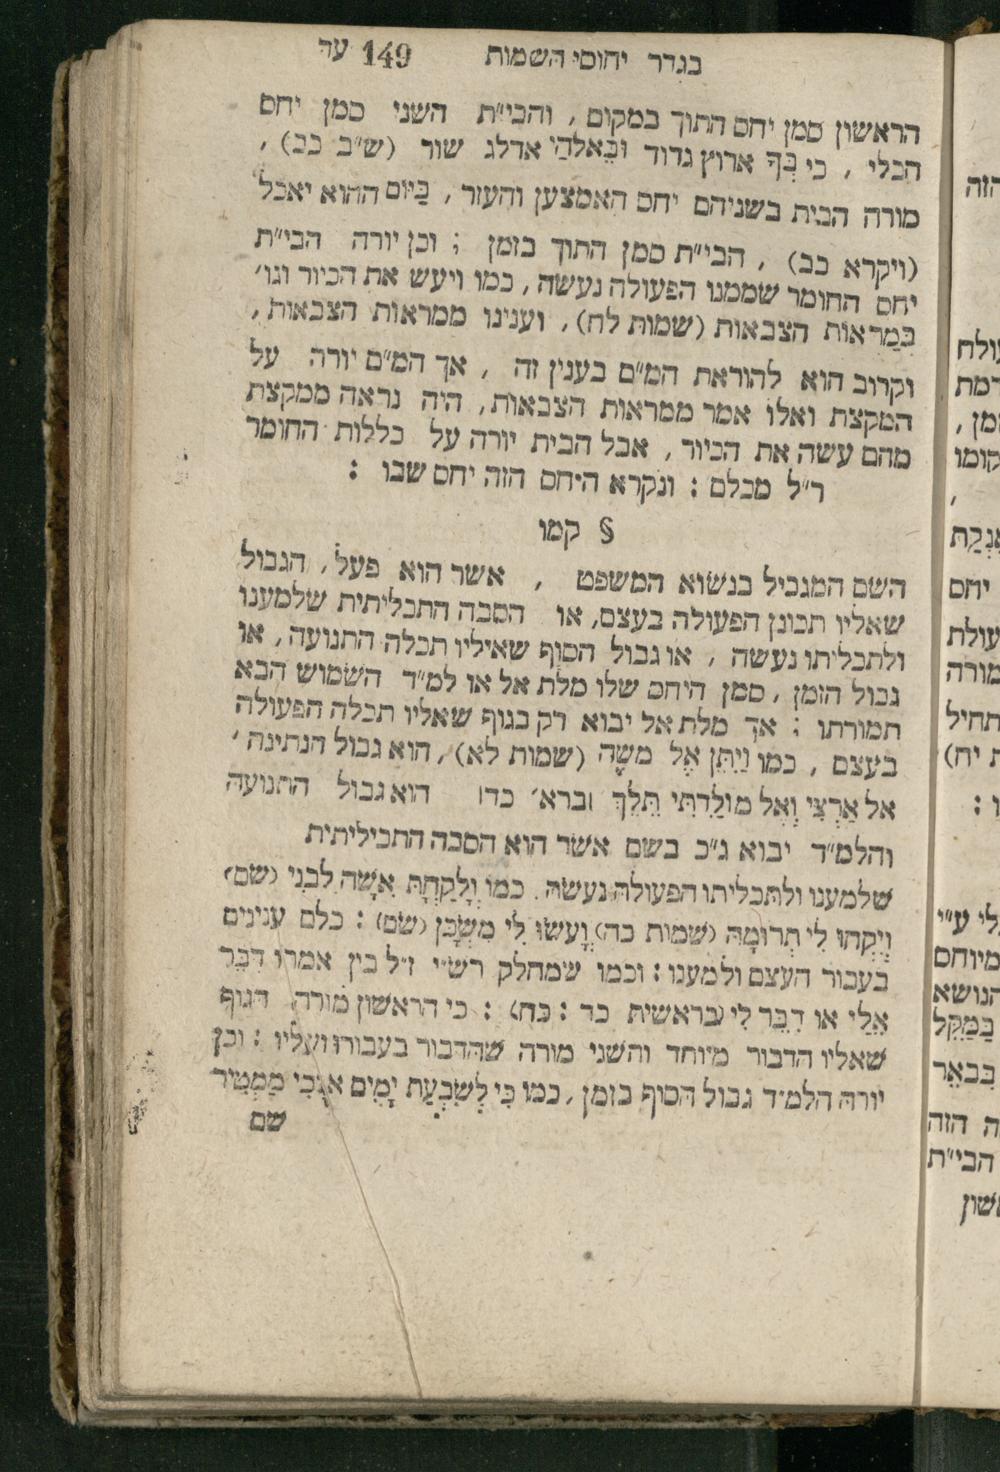 בגדר יחוסי השמות 149 עד
הראשון סמן יחס התוך במקום, והבי״ת השני סמן יחס
הכלי, כי בְּךָ ארוץ גדוד וּבֵאלֹהַי אדלג שור (ש״ב כב),
מורה הבית בשניהם יחס האמצעי והעזר, בַּיּוֹם ההוא יאכל
(ויקרא כב), הבי״ת סמן התוך בזמן; וכן יורה הבי״ת
יחס החומר שממנו הפעולה נעשה, כמו ויעש את הכיור וגו׳
בְּמַראוֹת הצבאות (שמות לח), וענינו ממראות הצבאות,
וקרוב הוא להוראת המ״ם בענין זה, אך המ״ם יורה על
המקצת ואלו אמר ממראות הצבאות, היה נראה ממקצת
מהם עשה את הכיור, אבל הבית יורה על כללות החומר
ר״ל מכלם: ונקרא היחס הזה יחס שבו:
§ קמו
השם המגביל בנשוא המשפט, אשר הוא פעל, הגבול
שאליו תכונן הפעולה בעצם, או הסבה התכליתית שלמענו
ולתכליתו נעשה, או גבול הסוף שאיליו תכלה התנועה, או
גבול הזמן, סמן היחס שלו מלת אל או למ״ד השמוש הבא
תמורתו; אך מלת אל יבוא רק בגוף שאליו תכלה הפעולה
בעצם, כמו וַיִּתֵּן אֶל משֶׁה (שמות לא), הוא גבול הנתינה,
אל אַרְצִי וְאֶל מוֹלַדְתִּי תֵּלֵךְ (ברא׳ כד) הוא גבול התנועה
והלמ״ד יבוא ג״כ בשם אשר הוא הסבה התכליתית
שלמענו ולתכליתו הפעולה נעשה. כמו וְלָקַחְתָּ אִשָּׁה לבְנִי (שם)
וְיִקְחוּ לִי תְּרוּמָה (שמות כה) וְעָשׂוּ לִי מִשְׁכָּן (שם): כלם ענינים
בעבור העצם ולמענו: וכמו שמחלק רש״י ז״ל בין אמרו דבר
אֵלַי או דִבֵּר לִי (בראשית כד: כח): כי הראשון מורה הגוף
שאליו הדבור מיוחד והשני מורה שהדבור בעבורו ועליו: וכן
יורה הלמ״ד גבול הסוף בזמן, כמו כִּי לְשִׁבְעַת יָמִים אָנֹכִי מַמְטִיר
שם